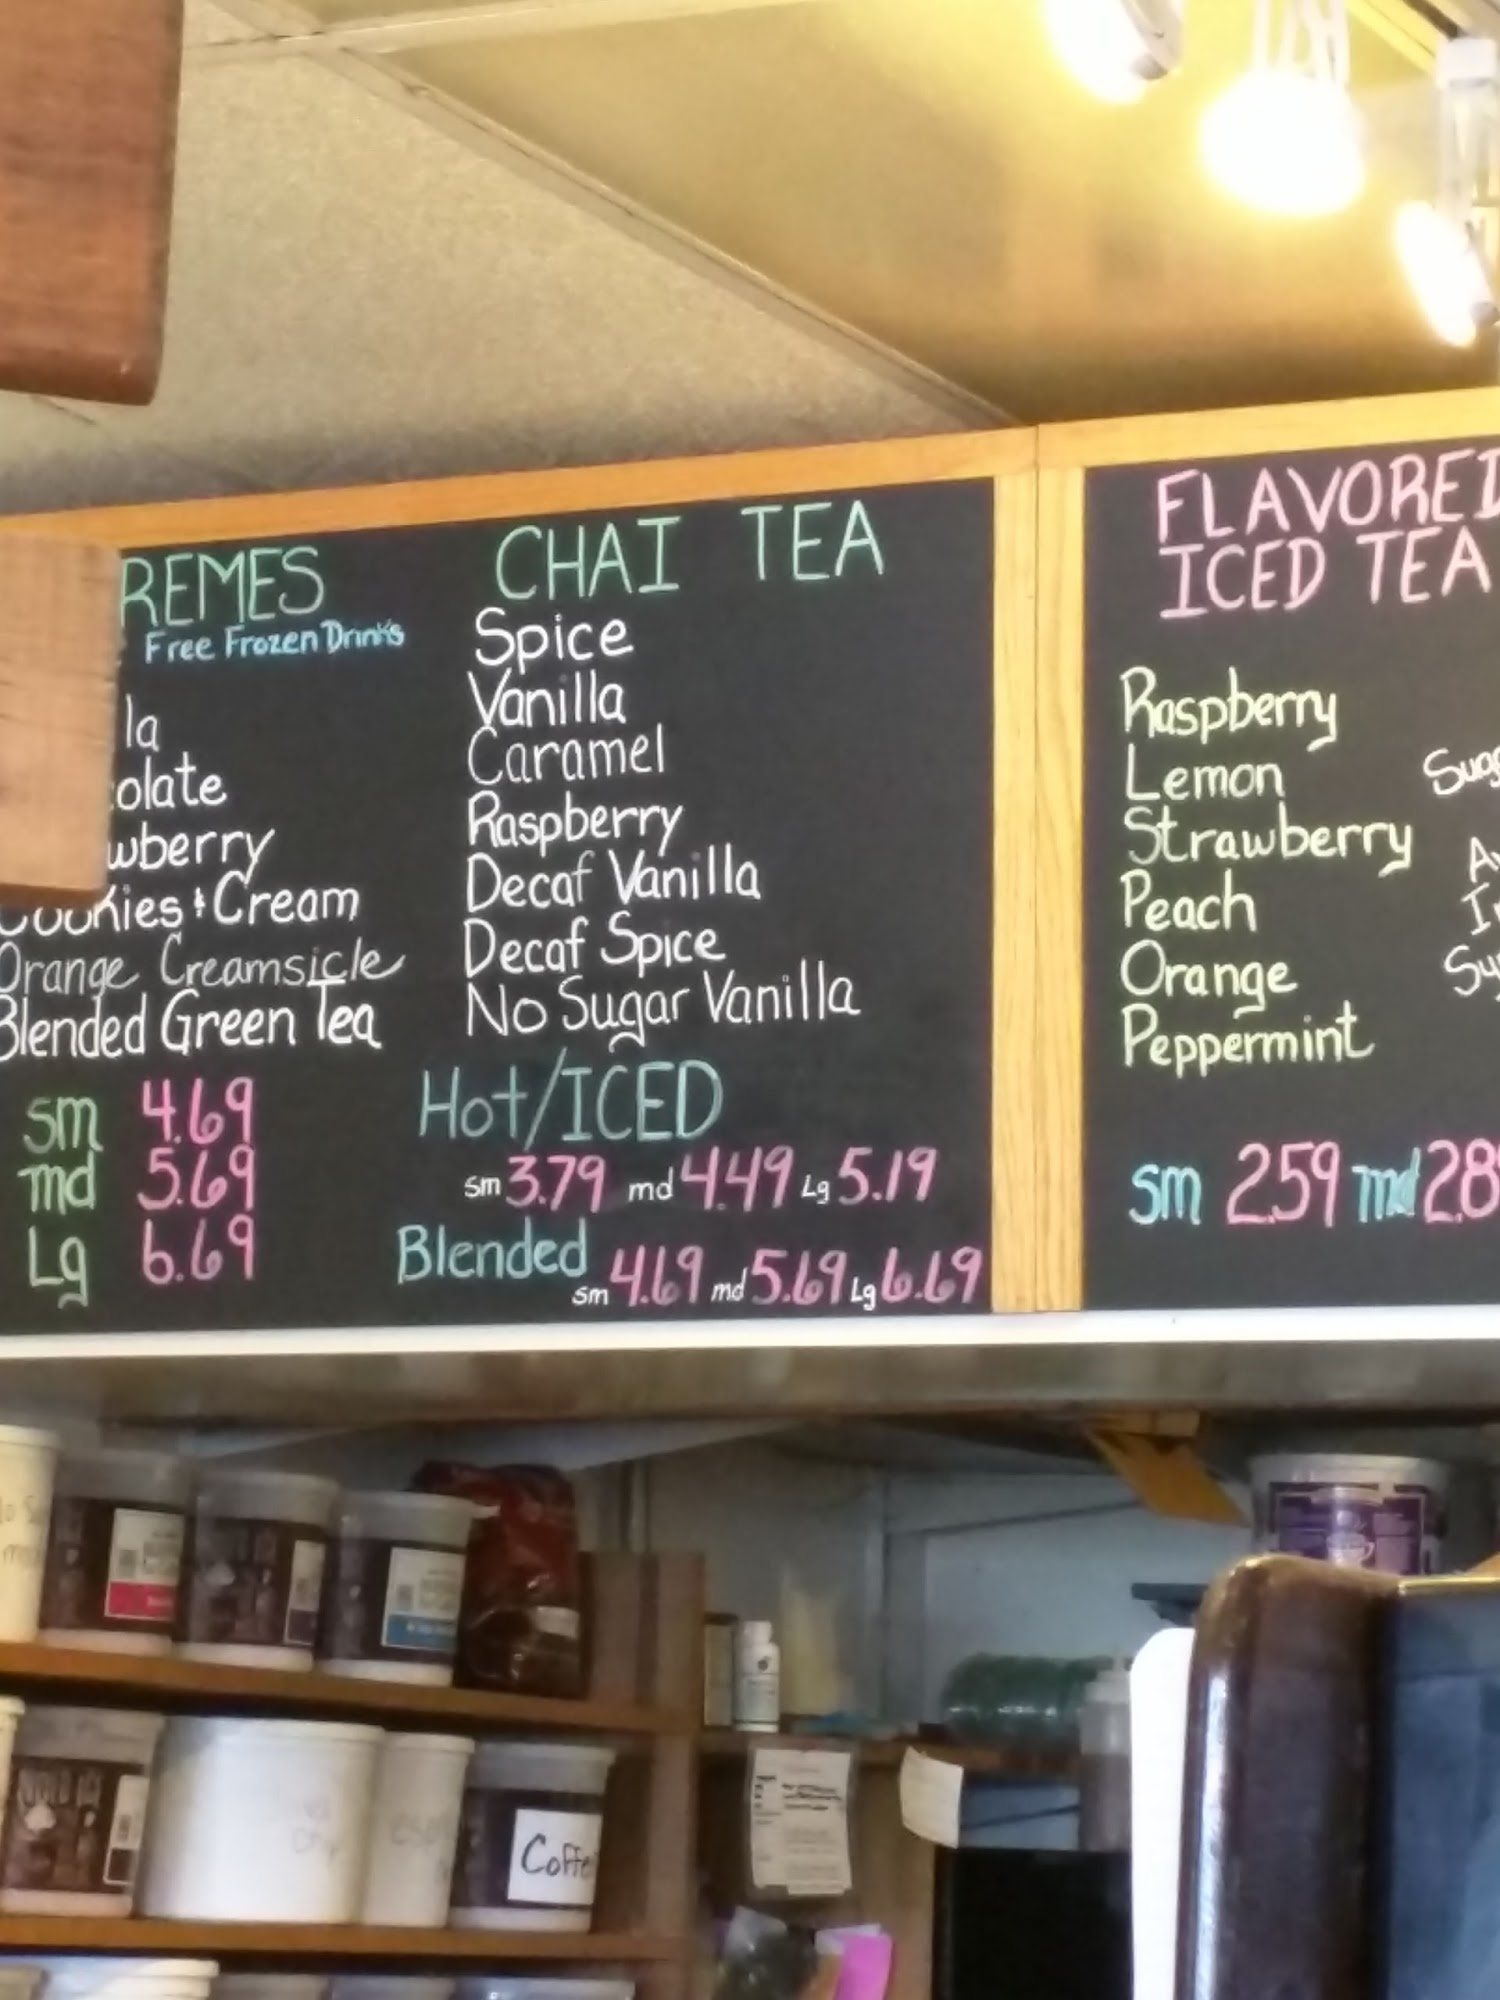 REMES
Free Frozen Drinks
la
olate
wberry
Cookies & Cream
Orange Creamsicle
Blended Green Tea
sm 4.69
md 5.69
Lg 6.69
CHAI TEA
Spice
Vanilla
Caramel
Raspberry
Decaf Vanilla
Decaf Spice
No Sugar Vanilla
Hot/ICED
sm 3.79 md 4.49 Lg 5.19
Blended
sm 4.69 md 5.69 Lg 6.69
FLAVORED
ICED TEA
Raspberry
Lemon
Strawberry
Peach
Orange
Peppermint
sm 2.59 md 2.8
Coffe